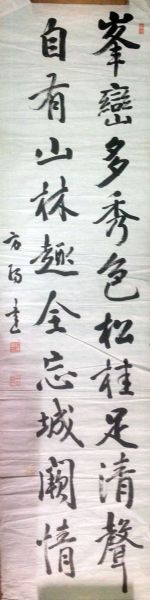 峯巒多秀色松桂足清聲
自有山林趣全忘城闕情